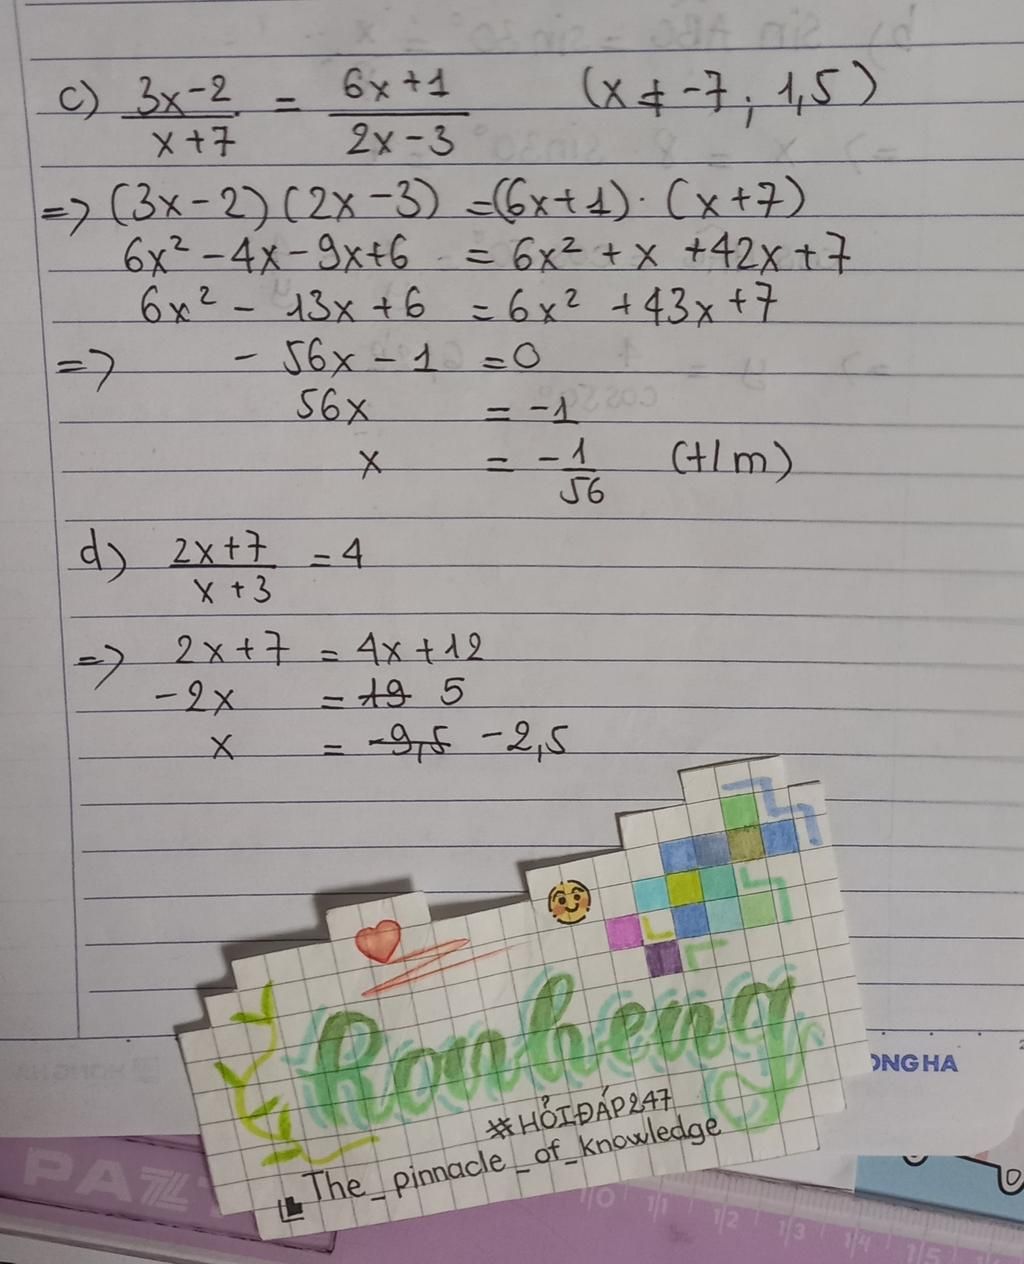 c) (3x-2)/(x+7) = (6x+1)/(2x-3) (x ≠ -7; 1,5)
=> (3x-2)(2x-3) = (6x+1)·(x+7)
6x² - 4x - 9x + 6 = 6x² + x + 42x + 7
6x² - 13x + 6 = 6x² + 43x + 7
=> - 56x - 1 = 0
56x = -1
x = -1/56 (t/m)
d) (2x+7)/(x+3) = 4
=> 2x+7 = 4x+12
-2x = 19 5
x = -9,5 -2,5
Ronheng
#HỎIĐÁP247
The_pinnacle_of_knowledge
ONG HA
PAZ
1/0 1/1 1/2 1/3 1/4 1/5